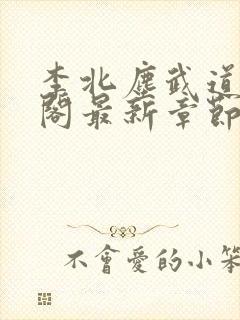 李北塵武道
閣最新章節
不會愛的小笨